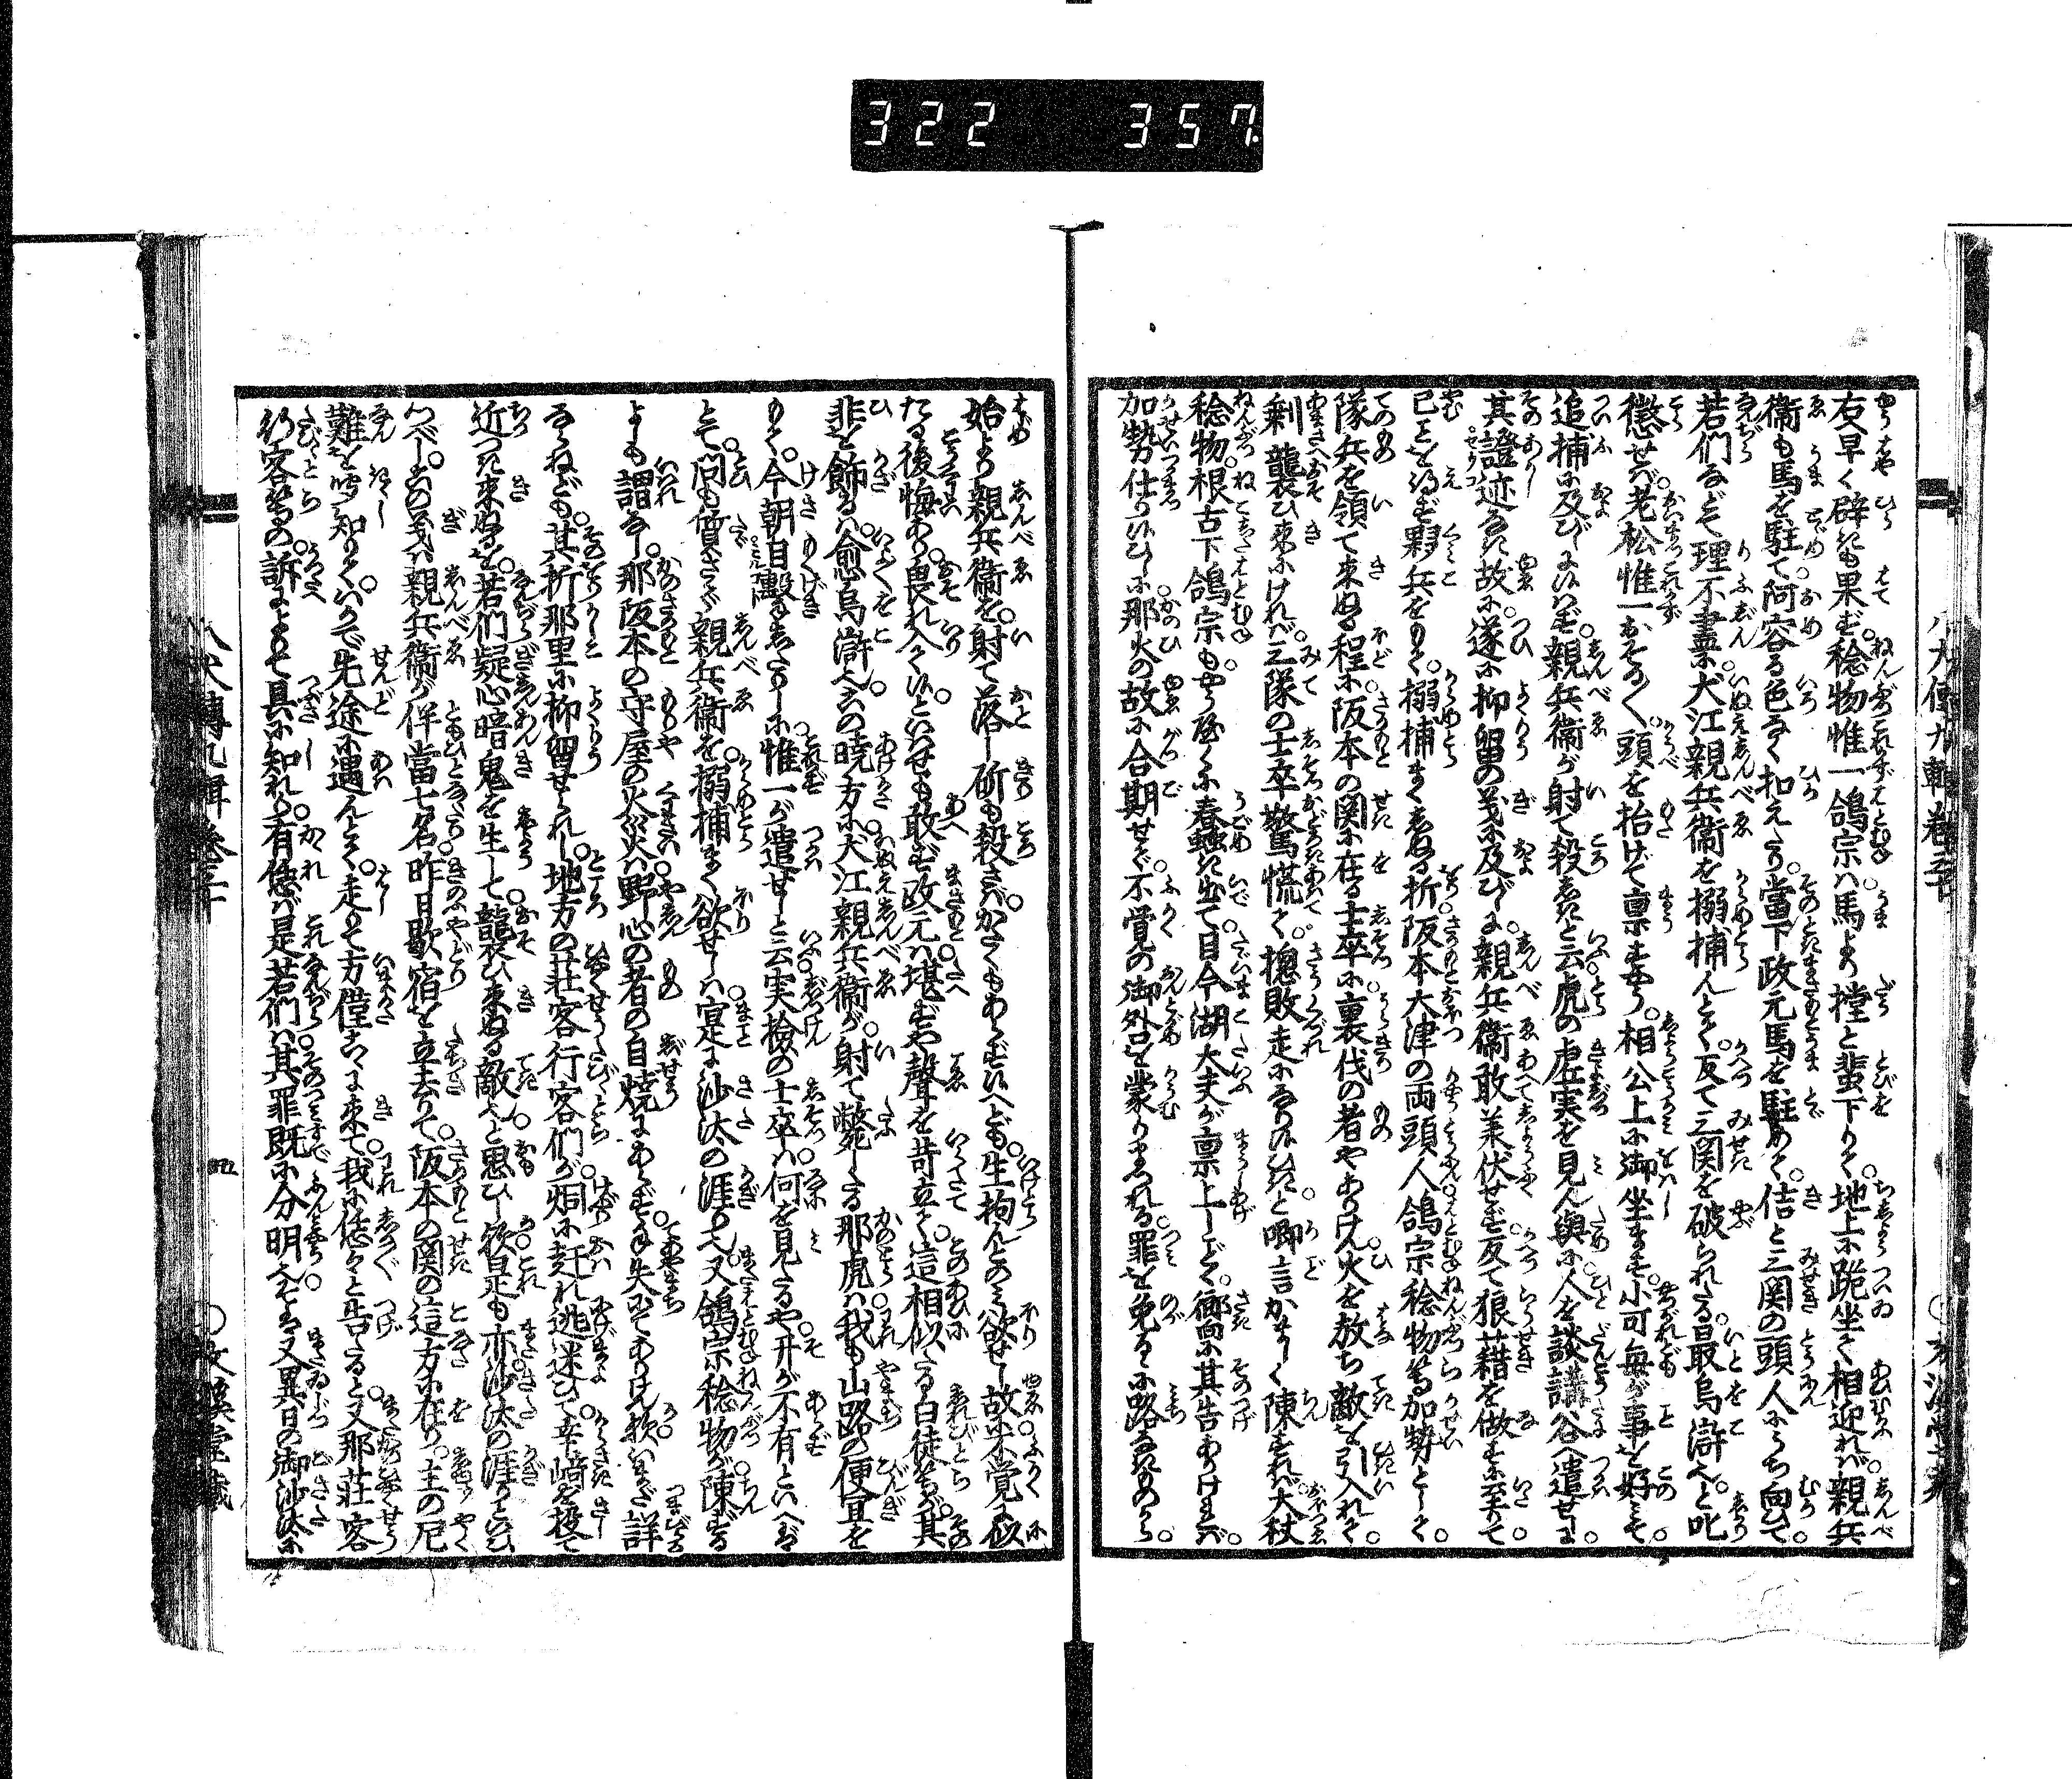 322 357
右早く辟きも果ず。稔物惟一鴿宗ハ。馬より撲と蜚下りて。地上に跪坐て相迎れバ。親兵
衛も馬を駐て。阿容る色なく扣えたり。當下政元馬を駐めて。佶と三関の頭人にうち向ひて。
若們などて理不盡に。犬江親兵衛を搦捕んとて。反て三関を破られたる。最烏滸也と叱
懲せバ。老松惟一おそる〳〵。頭を抬げて禀すやう。相公上に御坐ませバ。小可毎が事を好みて。
追捕に及びしにハいはず。親兵衛が射て殺しきと云。虎の虚実を見ん與に。人を談講谷へ遣せしに。
其證迹なき故に。遂に抑留の義に及びしに。親兵衛敢兼伏せず。反て狼藉を做すに至りて。
已ことを得ず夥兵をもて。搦捕まくしぬる折。阪本大津の両頭人。鴿宗稔物等加勢として。
隊兵を領て来ぬる程に。阪本の関に在る士卒に。裏伐の者やありけん。火を放ち敵を引入れて。
剰襲ひ来にけれバ。三隊の士卒驚慌て。摠敗走になり候ひきと。卿言がましく陳ずれバ。大杖
稔物。根古下鴿宗も。やう〳〵に春蠢き出て。目今湖大夫が禀上しごとく。嚮に其告ありけれバ。
加勢仕り候ひしに。那火の故に合期せず。不覚の御咎を蒙りまつれる。罪を免るゝに路なきのから。
始より親兵衛を。射て落し斫も殺さバ。かくもあらず候へども。生拘んとのミ欲せし故に。不覚に似
たる後悔あり。畏れ入て候といはせも敢ず。政元ハ堪ずや聲を苛立て。這相似たる白徒等が。其
非を飾るハ。愈烏滸也。這の暁方に犬江親兵衛が。射て斃したる那虎ハ。我も山路の便宜を
もて。今朝目撃をしたりしに。惟一が遣せしと云。実檢の士卒ハ。何を見たるや。そが不有といへバ
とて。問も質さず親兵衛を。搦捕まく欲せしハ。寔に沙汰の涯り也。又鴿宗稔物が。陳ずる
よしも謂なし。那阪本の守屋の火災ハ。野心の者の自焼にあらず。失にてありけん歟。いまだ詳
ならねども。其折那里に抑留せられし。地方の荘客行客們が。烟に赶れ逃迷ひて。辛﨑を投て
近つき来ぬるを。若們疑心暗鬼を生して。襲ひ来ぬる敵也と思ひし歟。是も亦沙汰の涯りといひ
つべし。這の義ハ親兵衛が伴當七名。昨日歇宿を立去りて。阪本の関の這方に在り。主の厄
難を咱知りて。いかで先途に遇んとて。走りて方僅こゝに来て。我に恁々と告たると。又那荘客
行客等の。訴によりて具に知れり。有恁バ是若們ハ。其罪既に分明也。そも又異日の御沙汰に
八犬傳九輯巻三十
四